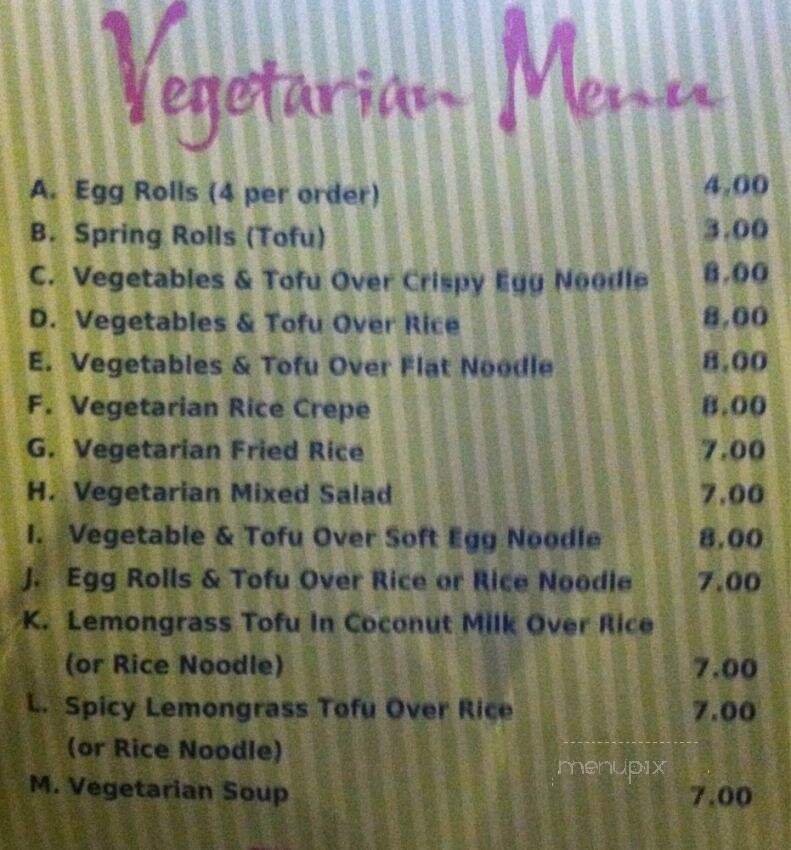 Vegetarian Menu
A. Egg Rolls (4 per order) 4.00
B. Spring Rolls (Tofu) 3.00
C. Vegetables & Tofu Over Crispy Egg Noodle 8.00
D. Vegetables & Tofu Over Rice 8.00
E. Vegetables & Tofu Over Flat Noodle 8.00
F. Vegetarian Rice Crepe 8.00
G. Vegetarian Fried Rice 7.00
H. Vegetarian Mixed Salad 7.00
I. Vegetable & Tofu Over Soft Egg Noodle 8.00
J. Egg Rolls & Tofu Over Rice or Rice Noodle 7.00
K. Lemongrass Tofu In Coconut Milk Over Rice
(or Rice Noodle) 7.00
L. Spicy Lemongrass Tofu Over Rice 7.00
(or Rice Noodle)
menupix
M. Vegetarian Soup 7.00